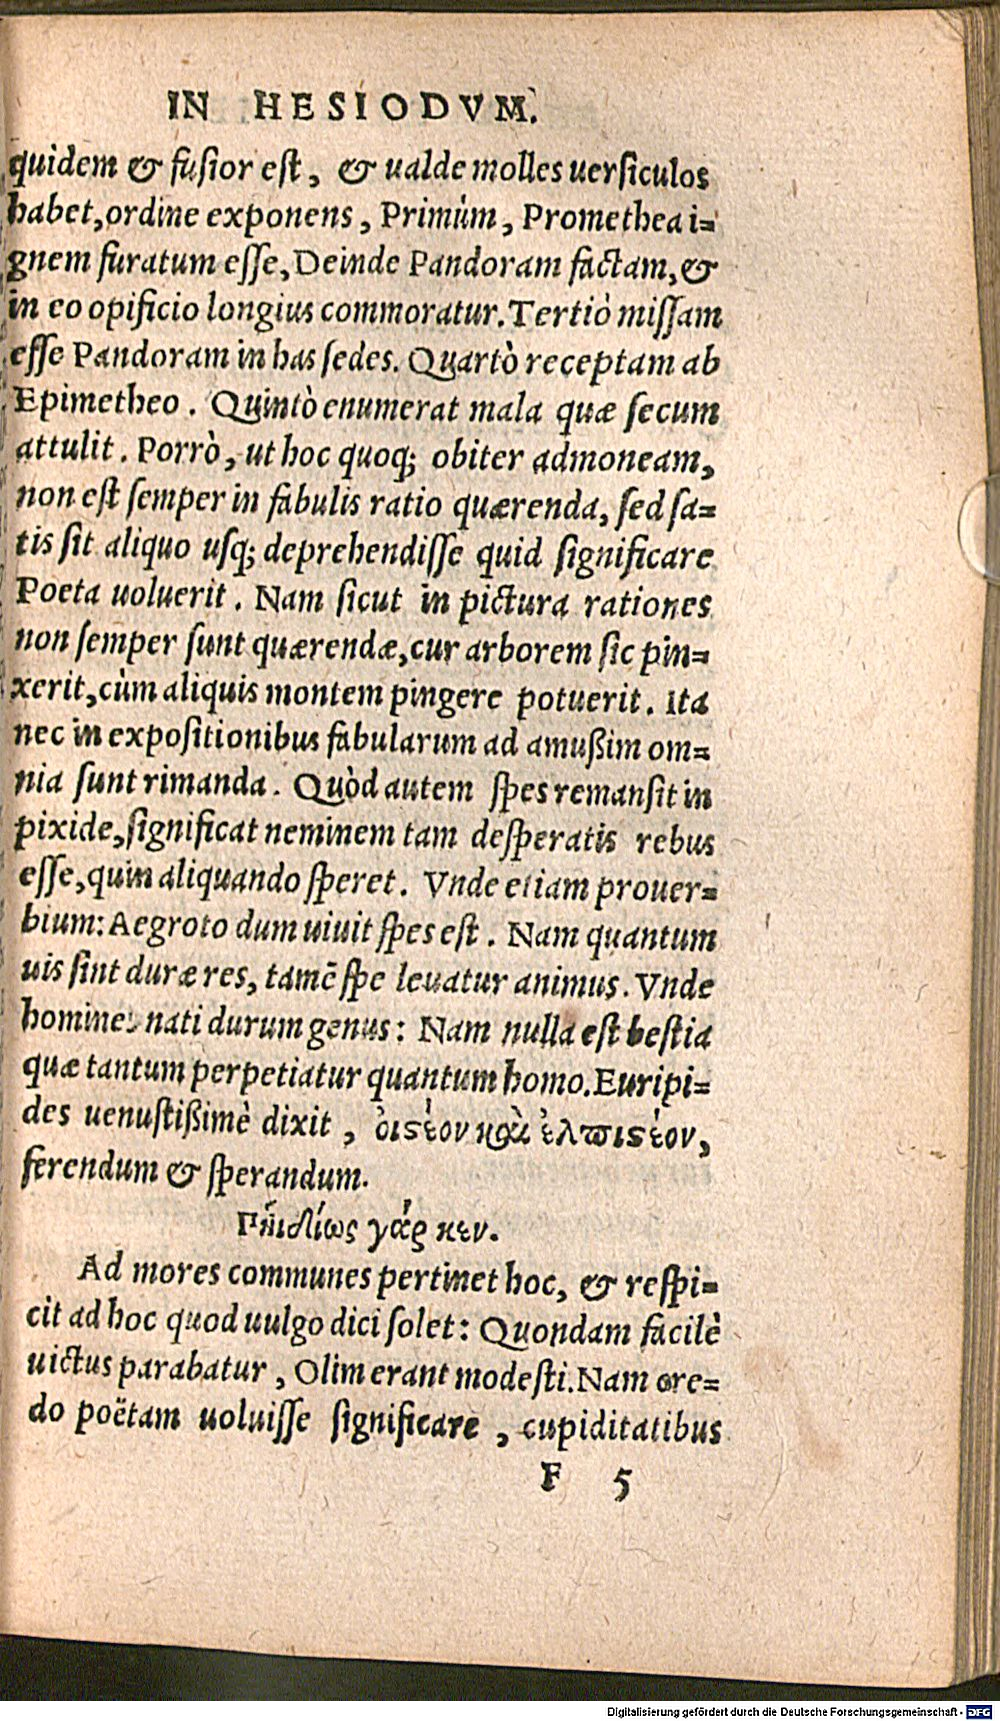 IN HESIODVM.
quidem & fusior est, & ualde molles uersiculos
habet, ordine exponens, Primùm, Promethea i=
gnem furatum esse, Deinde Pandoram factam, &
in eo opificio longius commoratur. Tertiò missam
esse Pandoram in has sedes. Quartò receptam ab
Epimetheo. Quintò enumerat mala quæ secum
attulit. Porrò, ut hoc quoq; obiter admoneam,
non est semper in fabulis ratio quærenda, sed sa=
tis sit aliquo usq; deprehendisse quid significare
Poeta uoluerit. Nam sicut in pictura rationes
non semper sunt quærendæ, cur arborem sic pin=
xerit, cùm aliquis montem pingere potuerit. Ita
nec in expositionibus fabularum ad amußim om=
nia sunt rimanda. Quòd autem spes remansit in
pixide, significat neminem tam desperatis rebus
esse, quin aliquando speret. Vnde etiam prouer=
bium: Aegroto dum uiuit spes est. Nam quantum
uis sint duræ res, tamē spe leuatur animus. Vnde
homines nati durum genus: Nam nulla est bestia
quæ tantum perpetiatur quantum homo. Euripi=
des uenustißimè dixit, οἰστέον καὶ ἐλπιστέον,
ferendum & sperandum.
Ρηϊδίως γάρ κεν.
Ad mores communes pertinet hoc, & respi=
cit ad hoc quod uulgo dici solet: Quondam facilè
uictus parabatur, Olim erant modesti. Nam cre=
do poëtam uoluisse significare, cupiditatibus
F 5
Digitalisierung gefördert durch die Deutsche Forschungsgemeinschaft - DFG